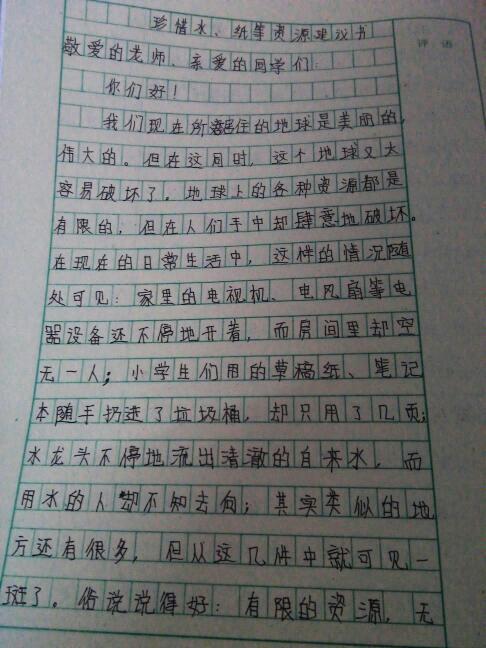 珍惜水、纸等资源建议书
评语
敬爱的老师、亲爱的同学们:
你们好!
我们现在所居住的地球是美丽的,
伟大的。但在这同时,这个地球又太
容易破坏了。地球上的各种资源都是
有限的,但在人们手中却肆意地破坏。
在现在的日常生活中,这样的情况随
处可见:家里的电视机、电风扇等电
器设备还不停地开着,而房间里却空
无一人;小学生们用的草稿纸、笔记
本随手扔进了垃圾桶,却只用了几页;
水龙头不停地流出清澈的自来水,而
用水的人却不知去向;其实类似的地
方还有很多,但从这几件中就可见一
斑了。俗说说得好:有限的资源,无